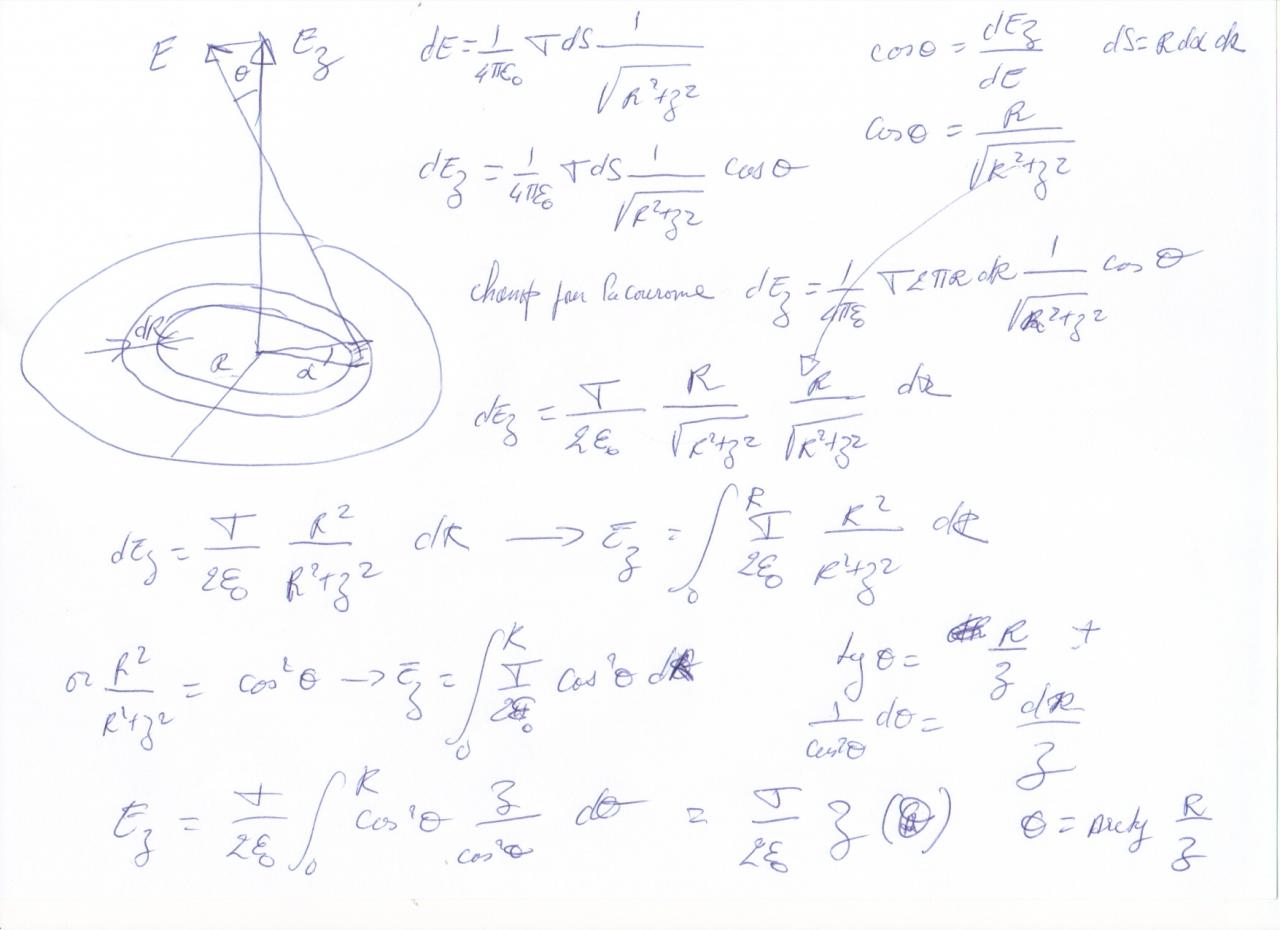 E θ E_z
dE = 1/4πε₀ T dS 1/√(R²+z²)
cosθ = dE_z/dE dS = R dα dR
dE_z = 1/4πε₀ T dS 1/√(R²+z²) cosθ
cosθ = R/√(R²+z²)
champ par la couronne dE_z = 1/4πε₀ T 2πR dR 1/√(R²+z²) cosθ
dR R α
dE_z = T/2ε₀ R/√(R²+z²) R/√(R²+z²) dR
dE_z = T/2ε₀ R²/(R²+z²) dR → E_z = ∫₀ᴿ T/2ε₀ R²/(R²+z²) dR
or R²/(R²+z²) = cos²θ → E_z = ∫₀ᴿ T/2ε₀ cos²θ dR
tgθ = R/z +
1/cos²θ dθ = dR/z
E_z = T/2ε₀ ∫₀ᴿ cos²θ z/cos²θ dθ = T/2ε₀ z (θ) θ = arctg R/z